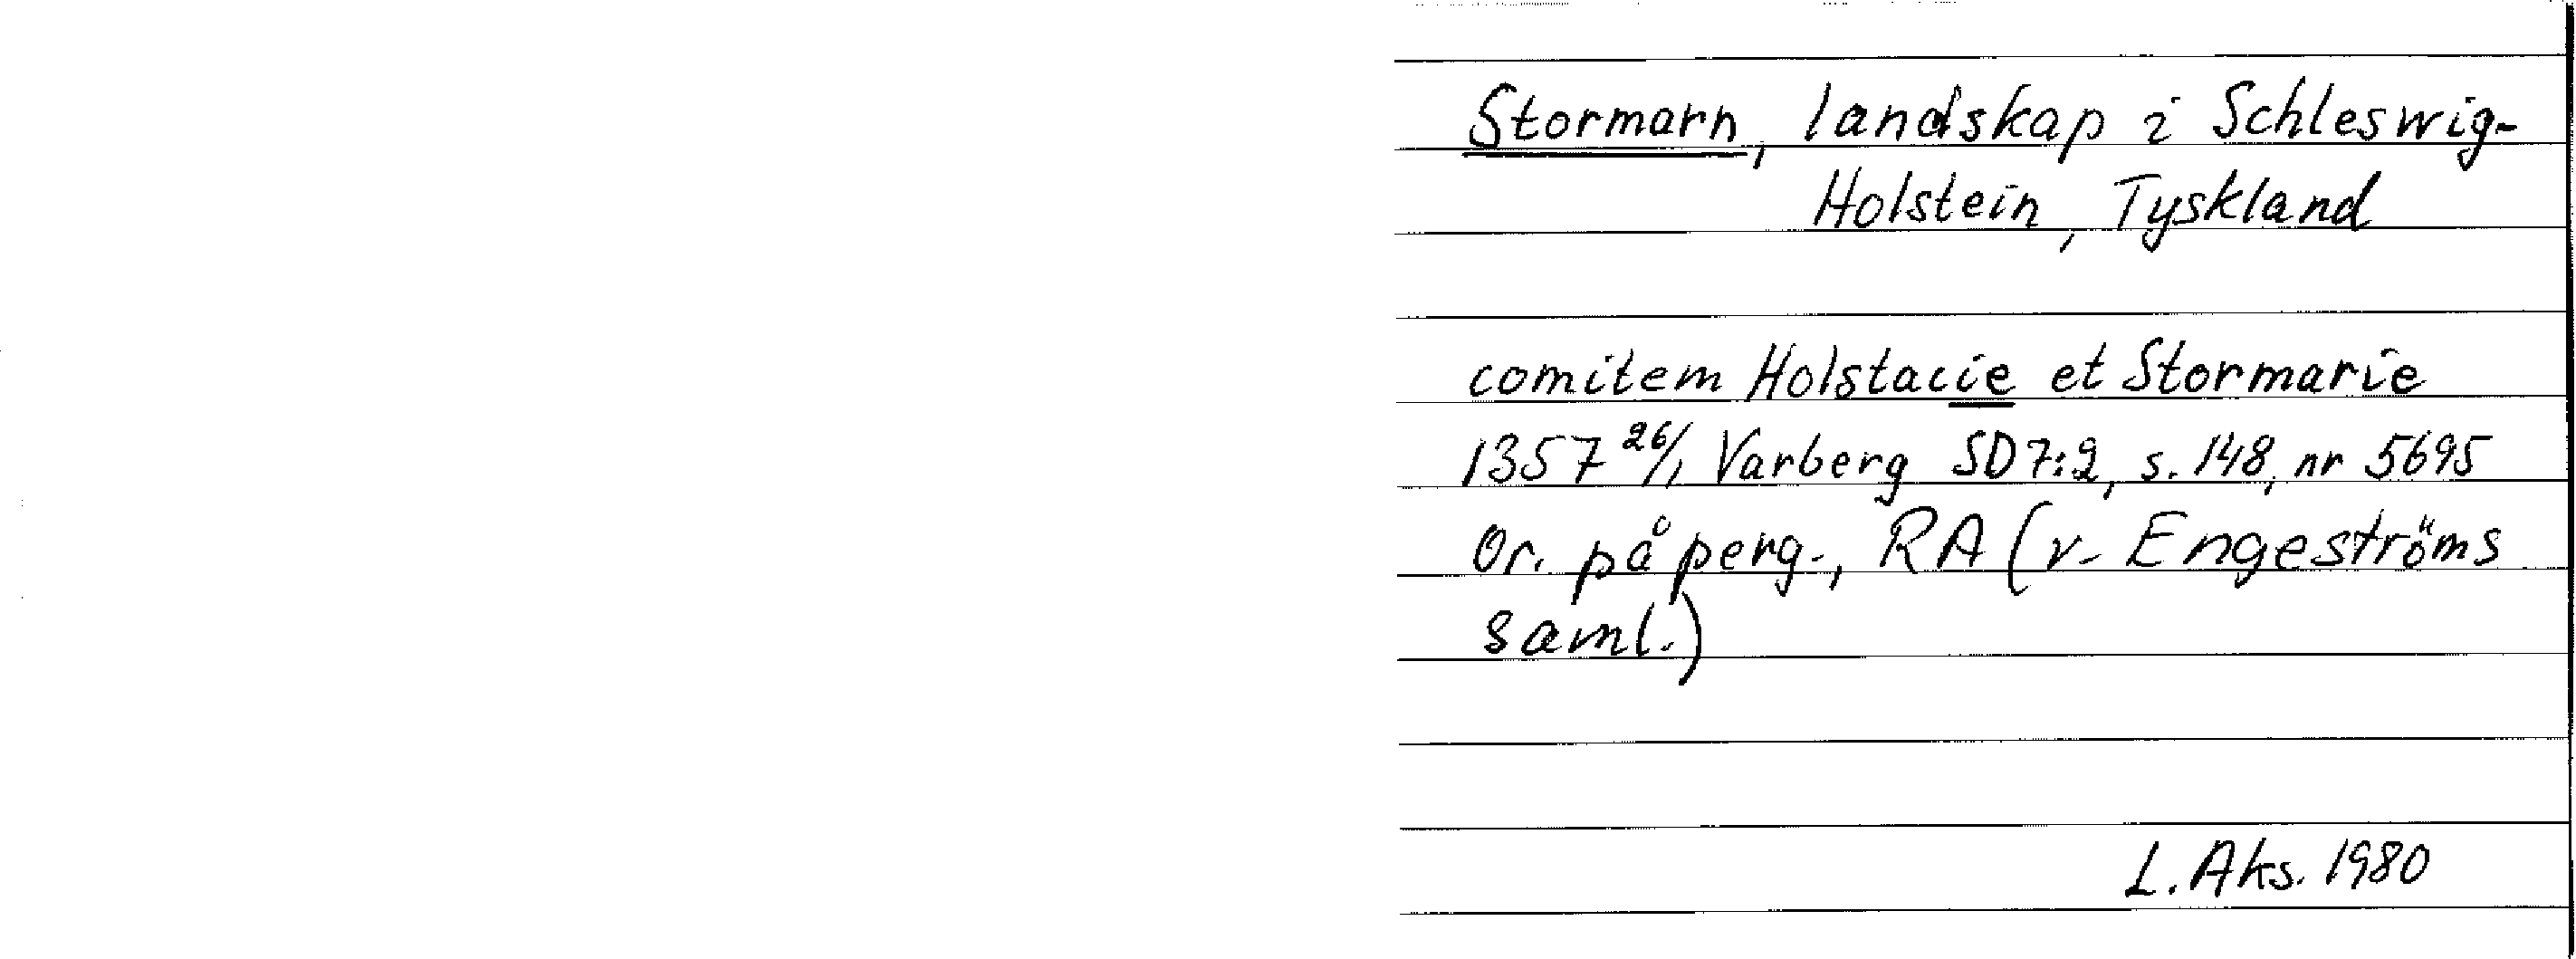 Stormarn, landskap i Schleswig-
Holstein, Tyskland
comitem Holstacie et Stormarie
1357 26/1 Varberg SD 7:2, s. 148, nr 5695
Or. på perg., RA (v. Engeströms
saml.)
L. Aks. 1980